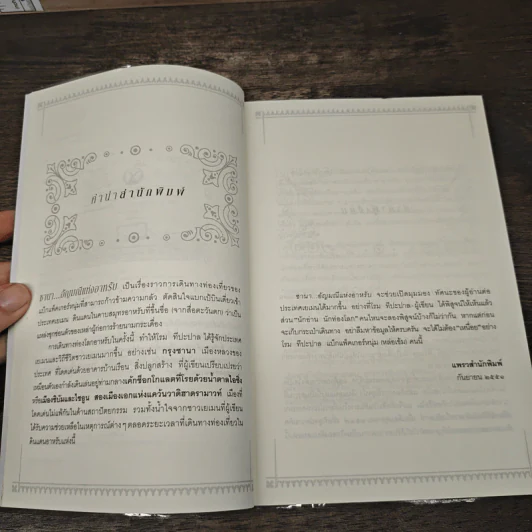 คำนำสำนักพิมพ์
ซานา...อัญมณีแห่งอาหรับ เป็นเรื่องราวการเดินทางท่องเที่ยวของ
แบ็กแพ็คเกอร์หนุ่มที่สามารถก้าวข้ามความกลัว ตัดสินใจแบกเป้บินเดี่ยวเข้า
ประเทศเยเมน ดินแดนในคาบสมุทรอาหรับที่ขึ้นชื่อ (จากสื่อตะวันตก) ว่าเป็น
แหล่งซุกซ่อนตัวของเหล่าผู้ก่อการร้ายนามกระเดื่อง
การเดินทางท่องโลกอาหรับในครั้งนี้ ทำให้โรม ทีปะปาล ได้รู้จักประเทศ
เยเมนและวิถีชีวิตชาวเยเมนมากขึ้น อย่างเช่น กรุงซานา เมืองหลวงของ
ประเทศ ที่โดดเด่นด้วยอาคารบ้านเรือน สิ่งปลูกสร้าง ที่ผู้เขียนเปรียบเปรยว่า
เหมือนตัวเองกำลังเดินเล่นอยู่ท่ามกลางเค้กช็อกโกแลตที่โรยด้วยน้ำตาลไอซิ่ง
หรือเมืองชิบัมและไซยูน สองเมืองเอกแห่งแคว้นวาดิฮาดรามาวท์ เมืองที่
โดดเด่นไม่แพ้กันในด้านสถาปัตยกรรม รวมทั้งน้ำใจจากชาวเยเมนที่ผู้เขียน
ได้รับความช่วยเหลือในเหตุการณ์ต่างๆ ตลอดระยะเวลาที่เดินทางท่องเที่ยวใน
ดินแดนอาหรับแห่งนี้
ซานา อัญมณีแห่งอาหรับ จะช่วยเปิดมุมมอง ทัศนะของผู้อ่านต่อ
ประเทศเยเมนได้มากขึ้น อย่างที่โรม ทีปะปาล-ผู้เขียน ได้พิสูจน์ให้เห็นแล้ว
ส่วน "นักอ่าน นักท่องโลก" คนไหนจะลองพิสูจน์บ้างก็ไม่ว่ากัน หากแต่ก่อน
จะเก็บกระเป๋าเดินทาง อย่าลืมหาข้อมูลให้ครบครัน จะได้ไม่ต้อง "เหนื่อย" อย่าง
โรม ทีปะปาล แบ็กแพ็คเกอร์หนุ่ม (หล่อเข้ม) คนนี้
แพรวสำนักพิมพ์
กันยายน ๒๕๕๒